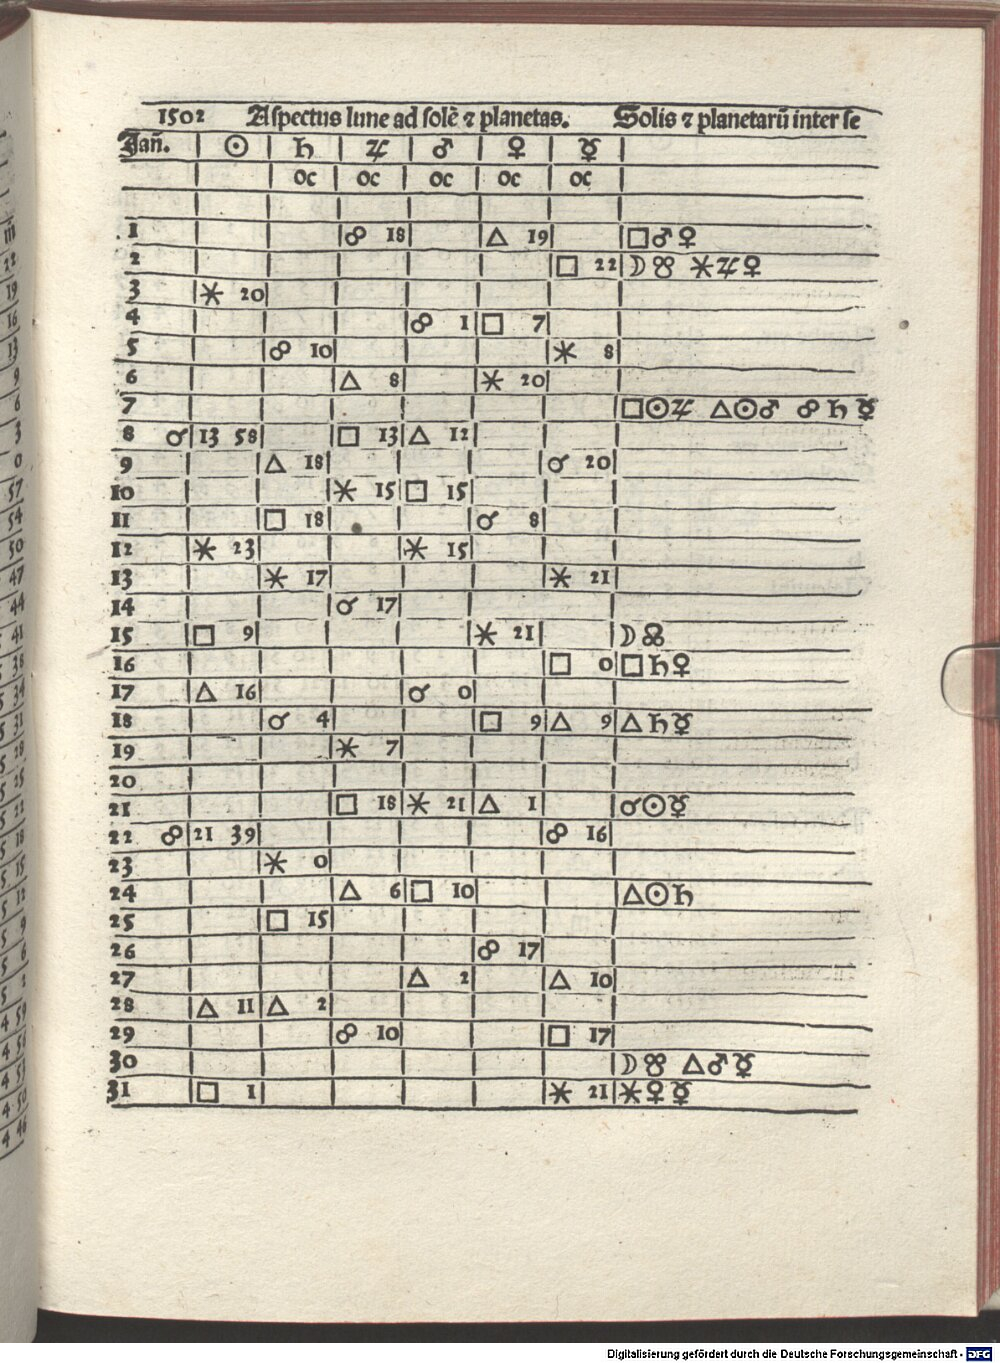 1502 Aspectus lune ad solē ⁊ planetas. Solis ⁊ planetarū inter se
Jañ. ☉ ♄ ♃ ♂ ♀ ☿
oc oc oc oc oc
1 ☍ 18 △ 19 □♂♀
2 □ 22 ☽☋ ⚹♃♀
3 ⚹ 20
4 ☍ 1 □ 7
5 ☍ 10 ⚹ 8
6 △ 8 ⚹ 20
7 □☉♃ △☉♂ ☍♄☿
8 ☌ 13 58 □ 13 △ 12
9 △ 18 ☌ 20
10 ⚹ 15 □ 15
11 □ 18 ☌ 8
12 ⚹ 23 ⚹ 15
13 ⚹ 17 ⚹ 21
14 ☌ 17
15 □ 9 ⚹ 21 ☽☊
16 □ 0 □♄♀
17 △ 16 ☌ 0
18 ☌ 4 □ 9 △ 9 △♄☿
19 ⚹ 7
20
21 □ 18 ⚹ 21 △ 1 ☌☉☿
22 ☍ 21 39 ☍ 16
23 ⚹ 0
24 △ 6 □ 10 △☉♄
25 □ 15
26 ☍ 17
27 △ 2 △ 10
28 △ 11 △ 2
29 ☍ 10 □ 17
30 ☽☋ △♂☿
31 □ 1 ⚹ 21 ⚹♀☿
Digitalisierung gefördert durch die Deutsche Forschungsgemeinschaft - DFG